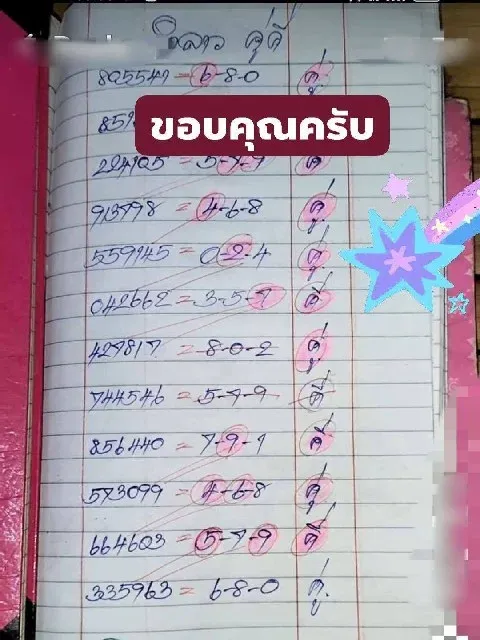 วิลาว คู่คี่
805541 = 6-8-0 คู่
ขอบคุณครับ
224105 = 5-7-9 คี่
913798 = 4-6-8 คู่
559145 = 0-2-4 คู่
042662 = 3-5-7 คี่
427817 = 8-0-2 คู่
744546 = 5-7-9 คี่
856440 = 7-9-1 คี่
573099 = 4-6-8 คู่
664603 = 5-7-9 คี่
335963 = 6-8-0 คู่.